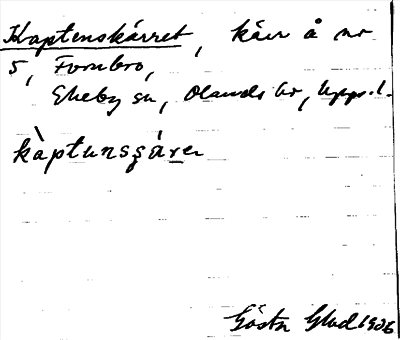 Kaptenskärret, kärr å nr
5, Fornbro,
Ekeby sn, Olands hr, Upps. l.
kàptunsʂárer
Gösta Glad 1926